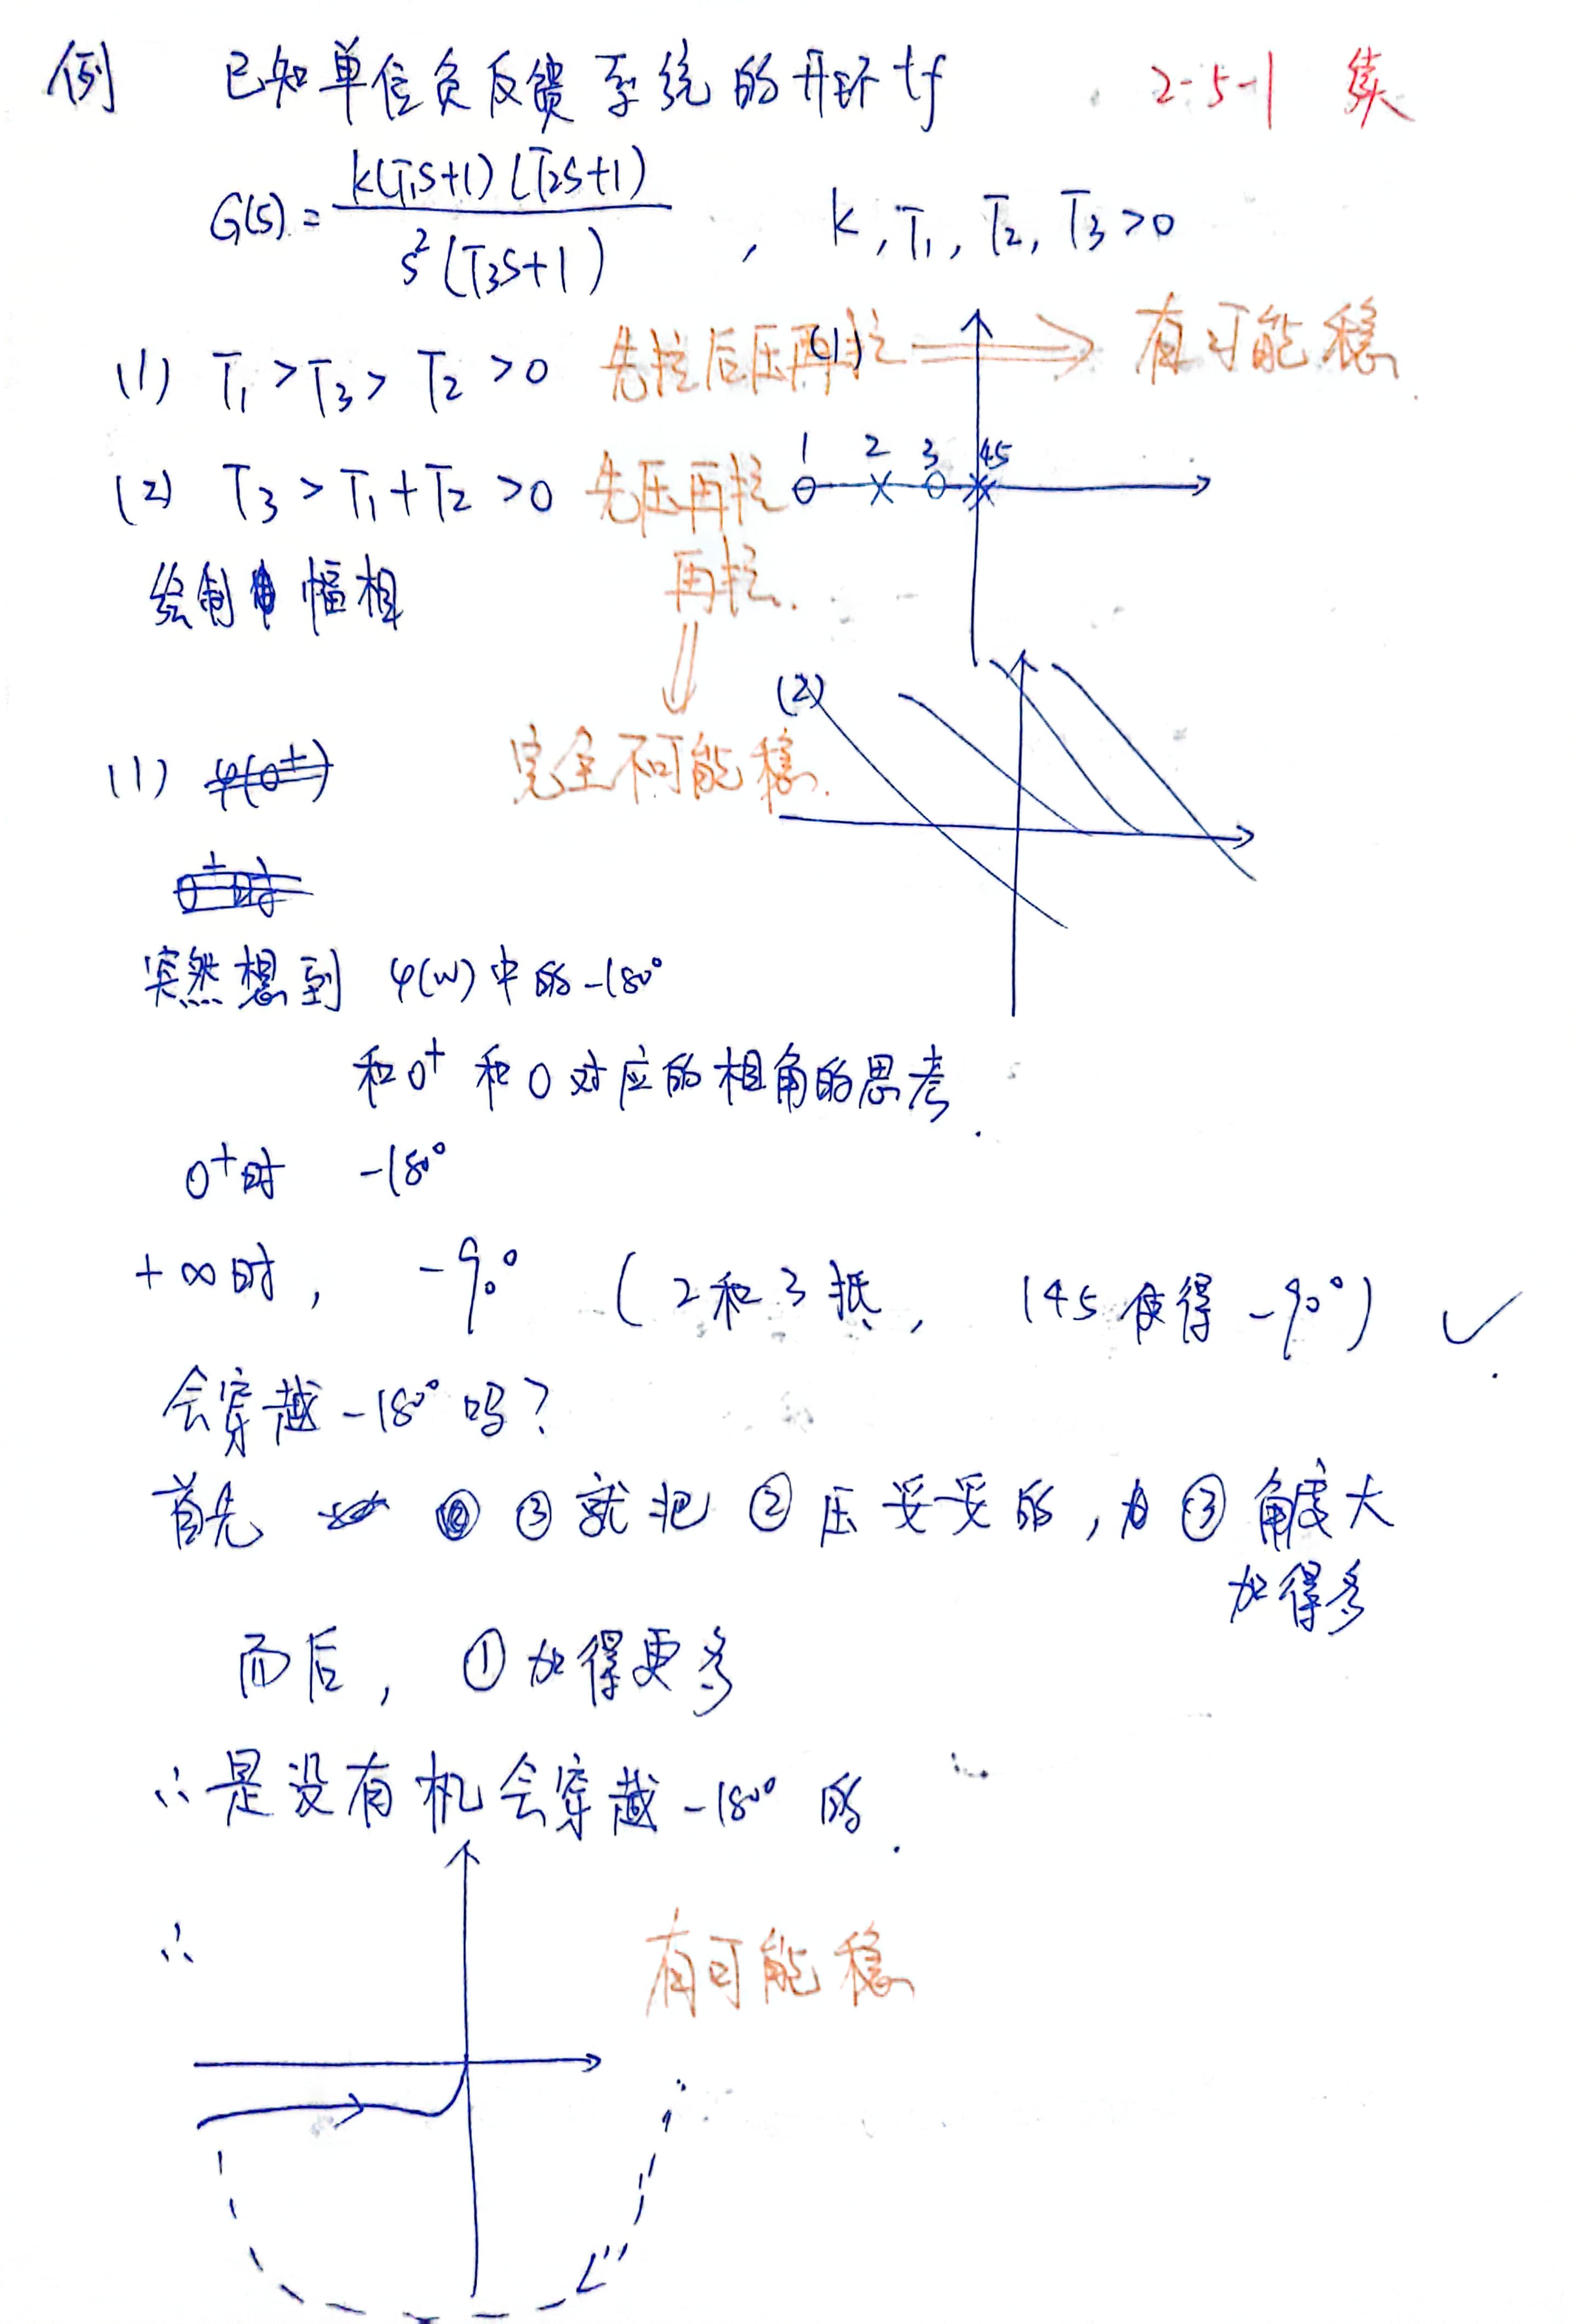 例 已知单位负反馈系统的开环tf 2-5-1 续
G(s) = K(T₁s+1)(T₂s+1) / s²(T₃s+1) , K, T₁, T₂, T₃ >0
(1) T₁ > T₃ > T₂ >0 先拉后压再拉 ⇒ 有可能稳
(1)
(2) T₃ > T₁+T₂ >0 先压再拉
再拉.
1 2 3 45
绘制幅相
⇓
完全不可能稳.
(2)
(1) φ(0⁺)
0⁺时
突然想到 φ(w)中的-180°
和0⁺和0对应的相角的思考.
0⁺时 -180°
+∞时, -90° (2和3抵, 145使得-90°) ✓
会穿越-180°吗?
首先 ③就把②压妥妥的, ③角度大
加得多
而后, ①加得更多
∴是没有机会穿越-180°的.
∴
有可能稳